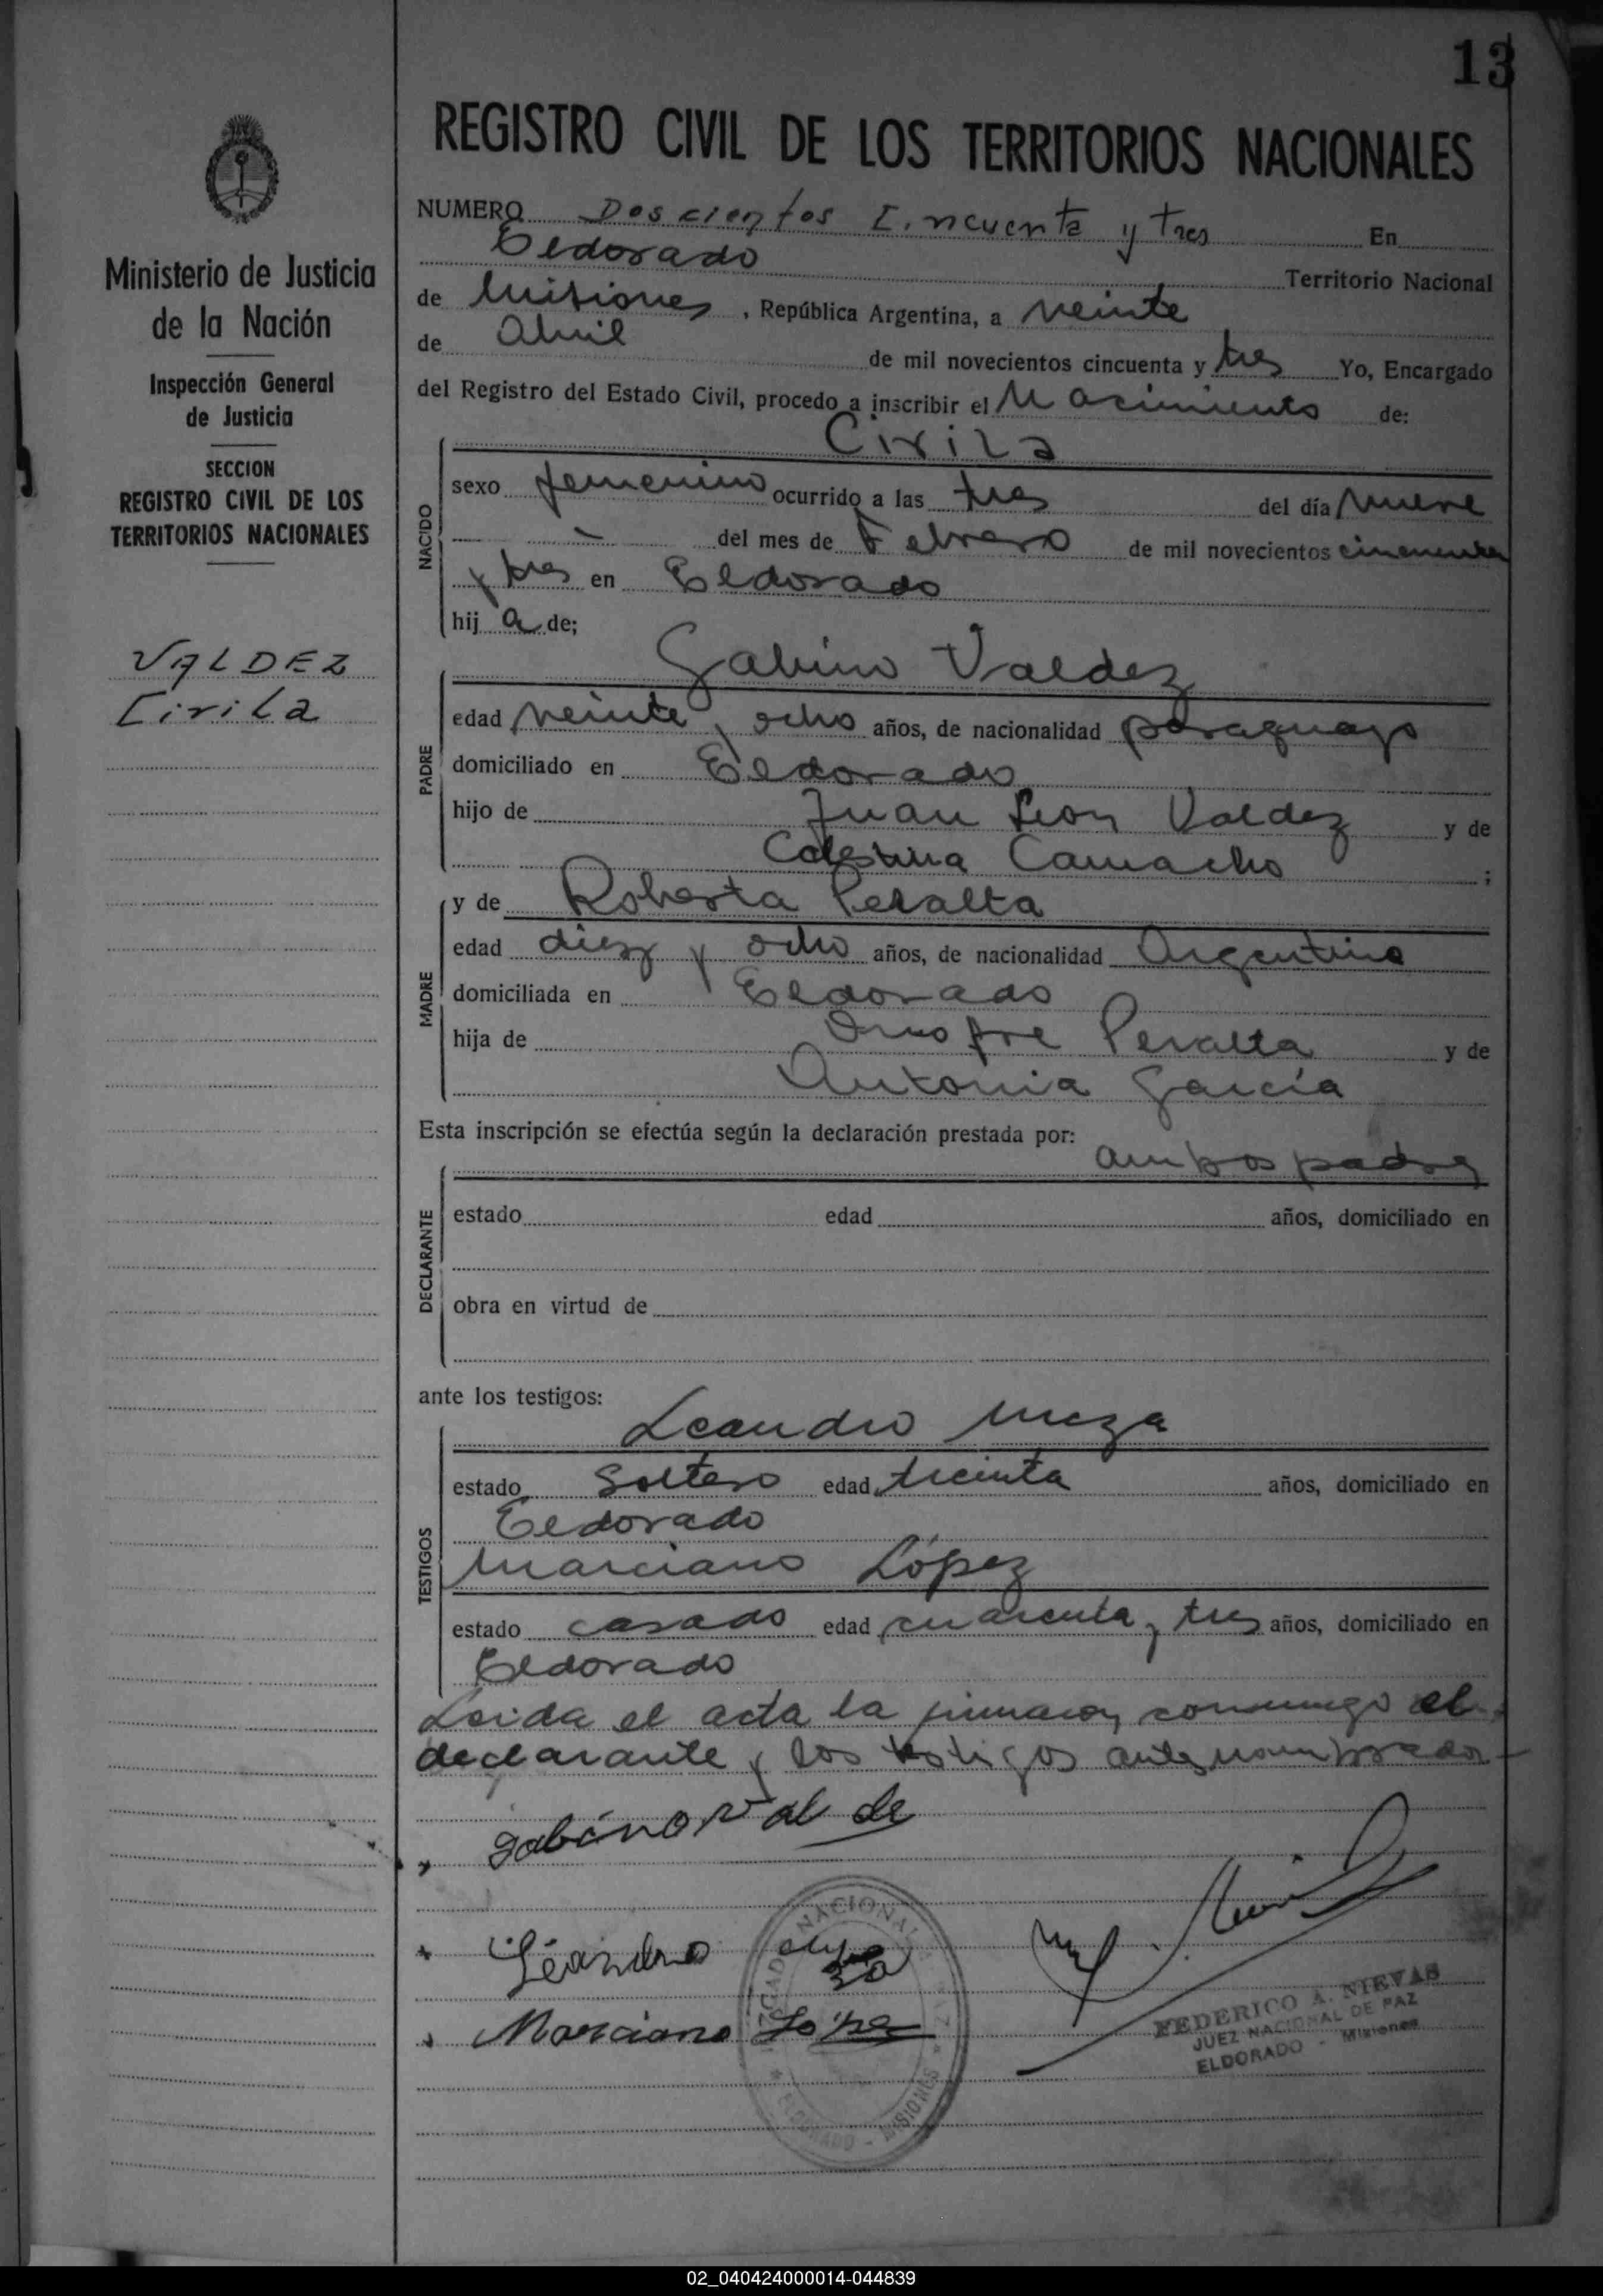 13
REGISTRO CIVIL DE LOS TERRITORIOS NACIONALES
Ministerio de Justicia
de la Nación
Inspección General
de Justicia
SECCION
REGISTRO CIVIL DE LOS
TERRITORIOS NACIONALES
VALDEZ
Cirila
NUMERO Doscientos Cincuenta y tres En
Eldorado Territorio Nacional
de Misiones, República Argentina, a veinte
de Abril de mil novecientos cincuenta y tres Yo, Encargado
del Registro del Estado Civil, procedo a inscribir el Nacimiento de:
NACIDO
Cirila
sexo femenino ocurrido a las tres del día nueve
del mes de Febrero de mil novecientos cincuenta
y tres en Eldorado
hij a de;
PADRE
Gabino Valdez
edad veinte y ocho años, de nacionalidad paraguayo
domiciliado en Eldorado
hijo de Juan Leon Valdez y de
Celestina Camacho ;
MADRE
y de Roberta Peralta
edad diez y ocho años, de nacionalidad Argentina
domiciliada en Eldorado
hija de Onofre Peralta y de
Antonia García
Esta inscripción se efectúa según la declaración prestada por:
ambos padres
DECLARANTE
estado edad años, domiciliado en
obra en virtud de
ante los testigos:
TESTIGOS
Leandro Meza
estado Soltero edad treinta años, domiciliado en
Eldorado
Marciano López
estado casado edad cuarenta y tres años, domiciliado en
Eldorado
Leida el acta la firmaron conmigo el
declarante y los testigos antes nombrados -
Gabino Valde
Leandro
Marciano López
JUZGADO NACIONAL DE PAZ
* ELDORADO - MISIONES *
FEDERICO A. NIEVAS
JUEZ NACIONAL DE PAZ
ELDORADO - Misiones
02_040424000014-044839